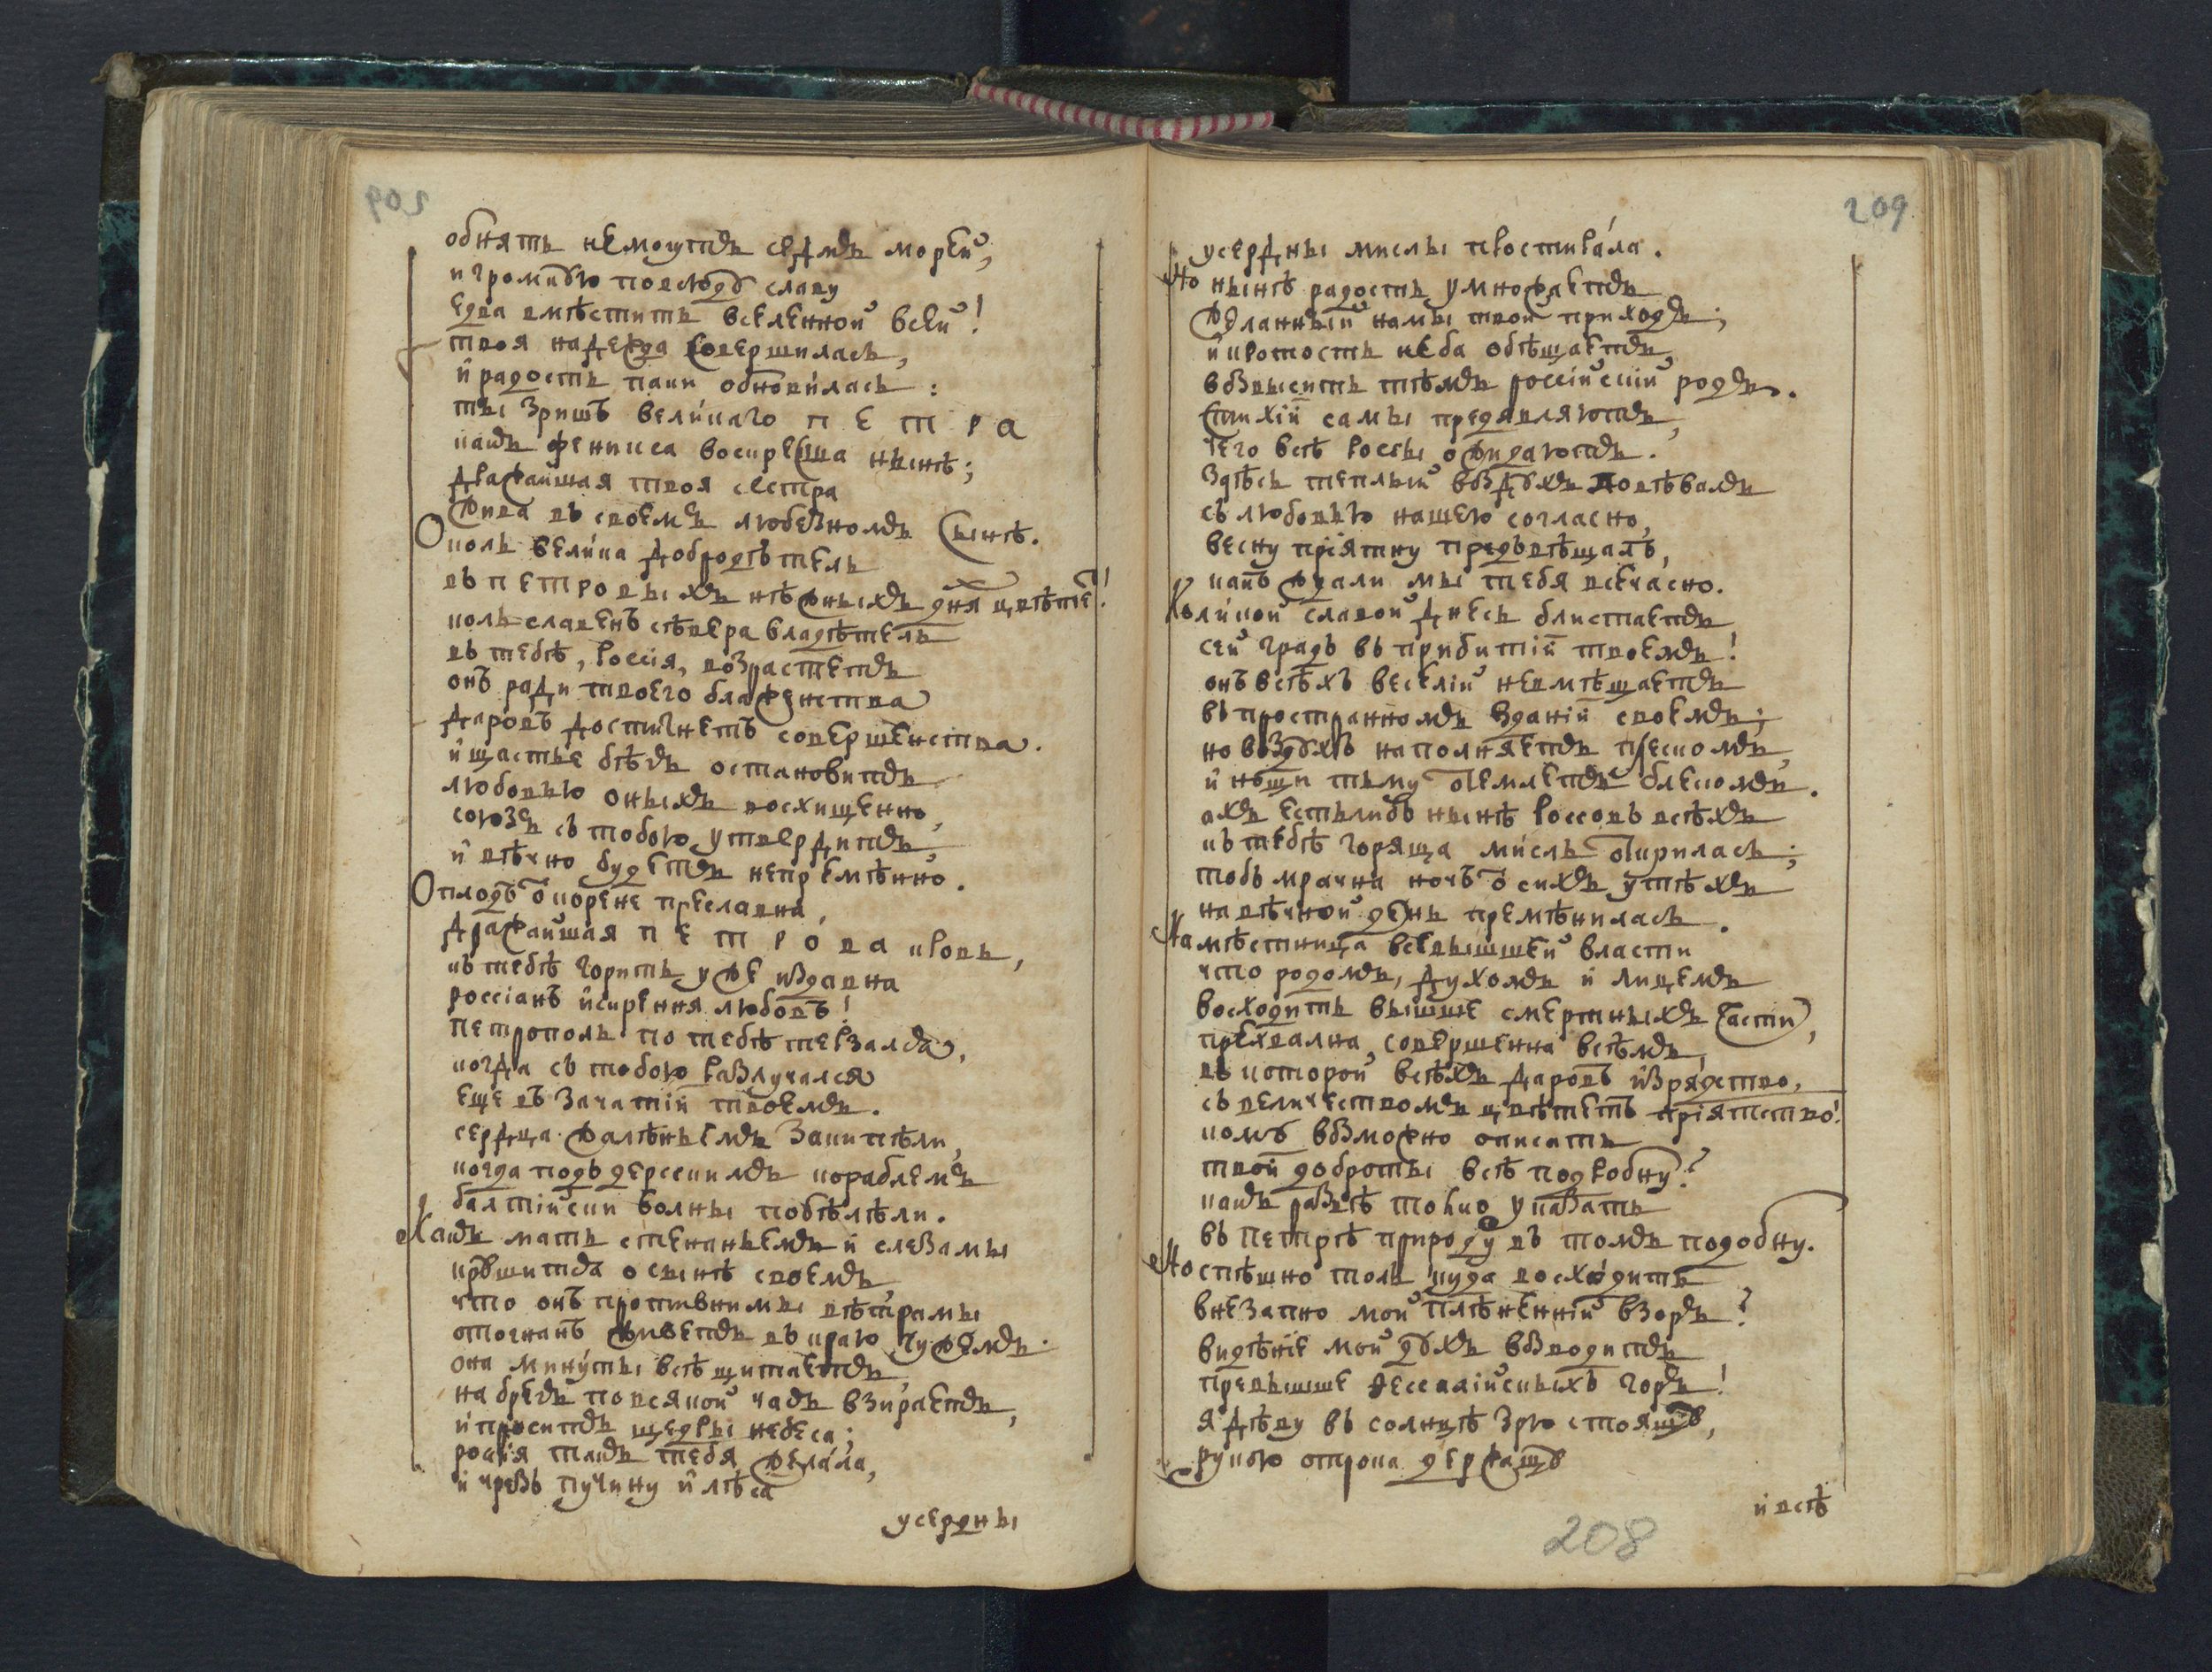 обнять не могутъ седмь морей,
и громкою повсюду славу
едва вмѣстить вселенной всей!
твоя надежда совершилась,
и радость паки обновилась:
ты зришъ великаго ПЕТРА
какъ феникса воскресша нынѣ;
дражайшая твоя сестра
жива въ своемъ любезномъ сынѣ.
О коль велика добродѣтель
въ ПЕТРОвыхъ нѣжныхъ дня цвѣтетъ!
коль славенъ сѣвера владѣтель
въ тебѣ, россія, возрастетъ
онъ ради твоего блаженства
даровъ достигнетъ совершенства.
и щастье бѣгъ остановитъ
любовью оныхъ восхищенно,
союзъ съ тобою утвердитъ,
и вѣчно будетъ непремѣнно.
О плодъ ѿ корене преславна,
дражайшая ПЕТРОва кровь,
къ тебѣ горитъ уже издавна
россіанъ искрення любовъ!
петрополь по тебѣ терзался,
когда съ тобою разлучался
еще въ зачатіи твоемъ.
сердца жалѣньемъ закипѣли,
когда подъ дерскимъ кораблемъ
балтійски волны побѣлѣли.
Какъ мать стенаньемъ и слезамы
крушится о сынѣ своемъ,
что онъ противнимы вѣтрамы
отогнанъ живетъ въ краю чужемъ.
она минуты всѣ щитаетъ,
на брегъ по всякой часъ взираетъ,
и проситъ щедры небеса;
россія такъ тебя желала,
и чрезъ пучину и лѣса
усердны
209
усердны мислы простирала.
Но нынѣ радость умножаетъ
желанный намы твой приходъ;
и кротость неба обѣщаетъ,
возвысить тѣмъ россійскій родъ.
Стихіи самы предявляютъ,
чего всѣ россы ожидаютъ.
здѣсь теплый воздухъ повѣвалъ
съ любовью нашею согласно,
весну пріятну предъвѣщалъ,
какъ ждали мы тебя всечасно.
Коликой славой днесь блистаетъ
сей градъ въ прибитіи твоемъ!
онъ всѣхъ веселій не вмѣщаетъ
въ пространномъ зданіи своемъ;
но воздухъ наполняетъ плескомъ,
и нощи тьму ѿемлетъ блескомъ.
ахъ естьлибъ нынѣ россовъ всѣхъ
къ тебѣ горяща мисль ѿкрилась;
тобъ мрачна ночъ ѿ сихъ утѣхъ
на вѣчной день премѣнилась.
Намѣстница всевышшей власти
что родомъ, духомъ и лицемъ
восходить вышше смертныхъ части,
прехвална, совершенна всѣмъ,
въ которой всѣхъ даровъ изрядство,
съ величествомъ цвѣтетъ пріятство!
кому возможно описать
твои доброты всѣ подробну?
какъ развѣ токио указать
въ Петрѣ природу въ томъ подобну.
Но спѣшно толь куда восходить
внезапно мой плѣненній взоръ?
видѣніе мой духъ возводитъ
превышше ѳессалійскыхъ горъ!
я дѣву въ солнцѣ зрю стоящу,
рукою отрока держащу
и всѣ
208